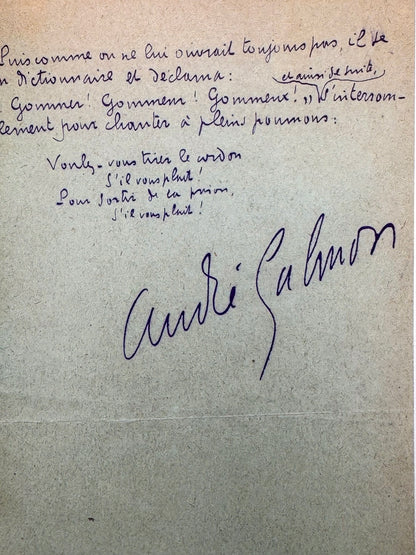 Puis comme on ne lui ouvrait toujours pas, il se
n dictionnaire et déclama :
et ainsi de suite,
! Gommer ! Gommeur ! Gommeux ! „ s'interrom-
lement pour chanter à pleins poumons :
Voulez-vous tirer le cordon
S'il vous plaît !
Pour sortir de la prison,
S'il vous plaît !
André Salmon